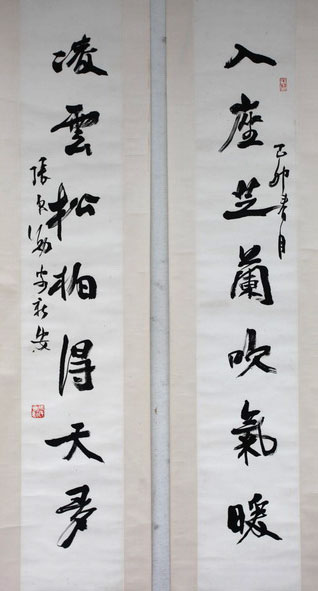 入座芝蘭吹氣暖
乙卯春月
凌雲松柏得天多
張良勛書於安